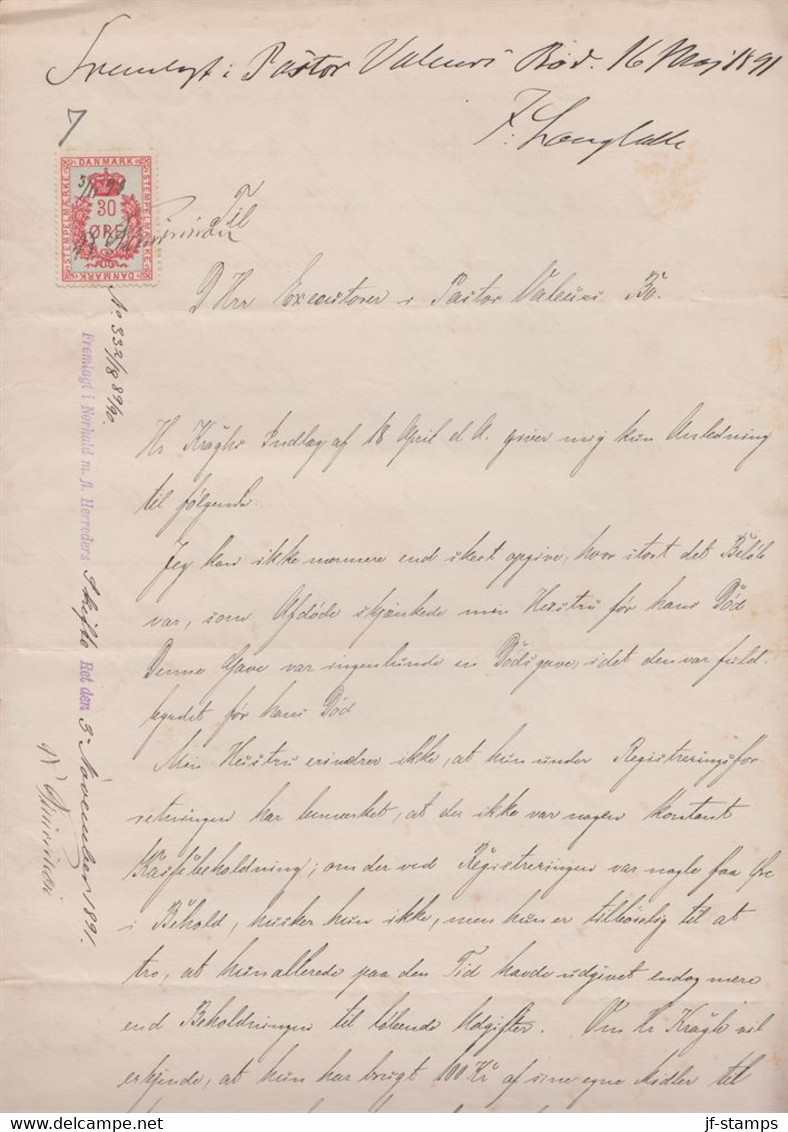 Fremlagt i Pastor Bod. 16 Maj 1891
7
DANMARK
STEMPELMÆRKE
STEMPELMÆRKE
30
ØRE
DANMARK
Til
D Hrr Executorer i Pastor Bo.
No. 337/8 89/90.
Fremlagt i Nørhald m. fl. Herreders Skifte Ret den 3' November 1891.
Hr Kraghs Indlæg af 18 April d. A. giver mig kun Anledning
til følgende:
Jeg kan ikke nærmere end skeet opgive, hvor stort det Beløb
var, som Afdøde skjænkede min Hustru før hans Død
Denne Gave var ingenlunde en Dödsgave, idet den var fuld-
byrdet før hans Død
Min Hustru erindrer ikke, at hun under Registreringsfor-
retningen har bemærket, at der ikke var nogen Kontant
Kassebeholdning; om der ved Registreringen var nogle faa Øre
i Behold, husker hun ikke, men hun er tilbøielig til at
tro, at hun allerede paa den Tid havde udgivet endog mere
end Beholdningen til løbende Udgifter. Om Hr Kragh vil
erkjende, at hun har brugt 100 Kr af sine egne Midler til
jf-stamps